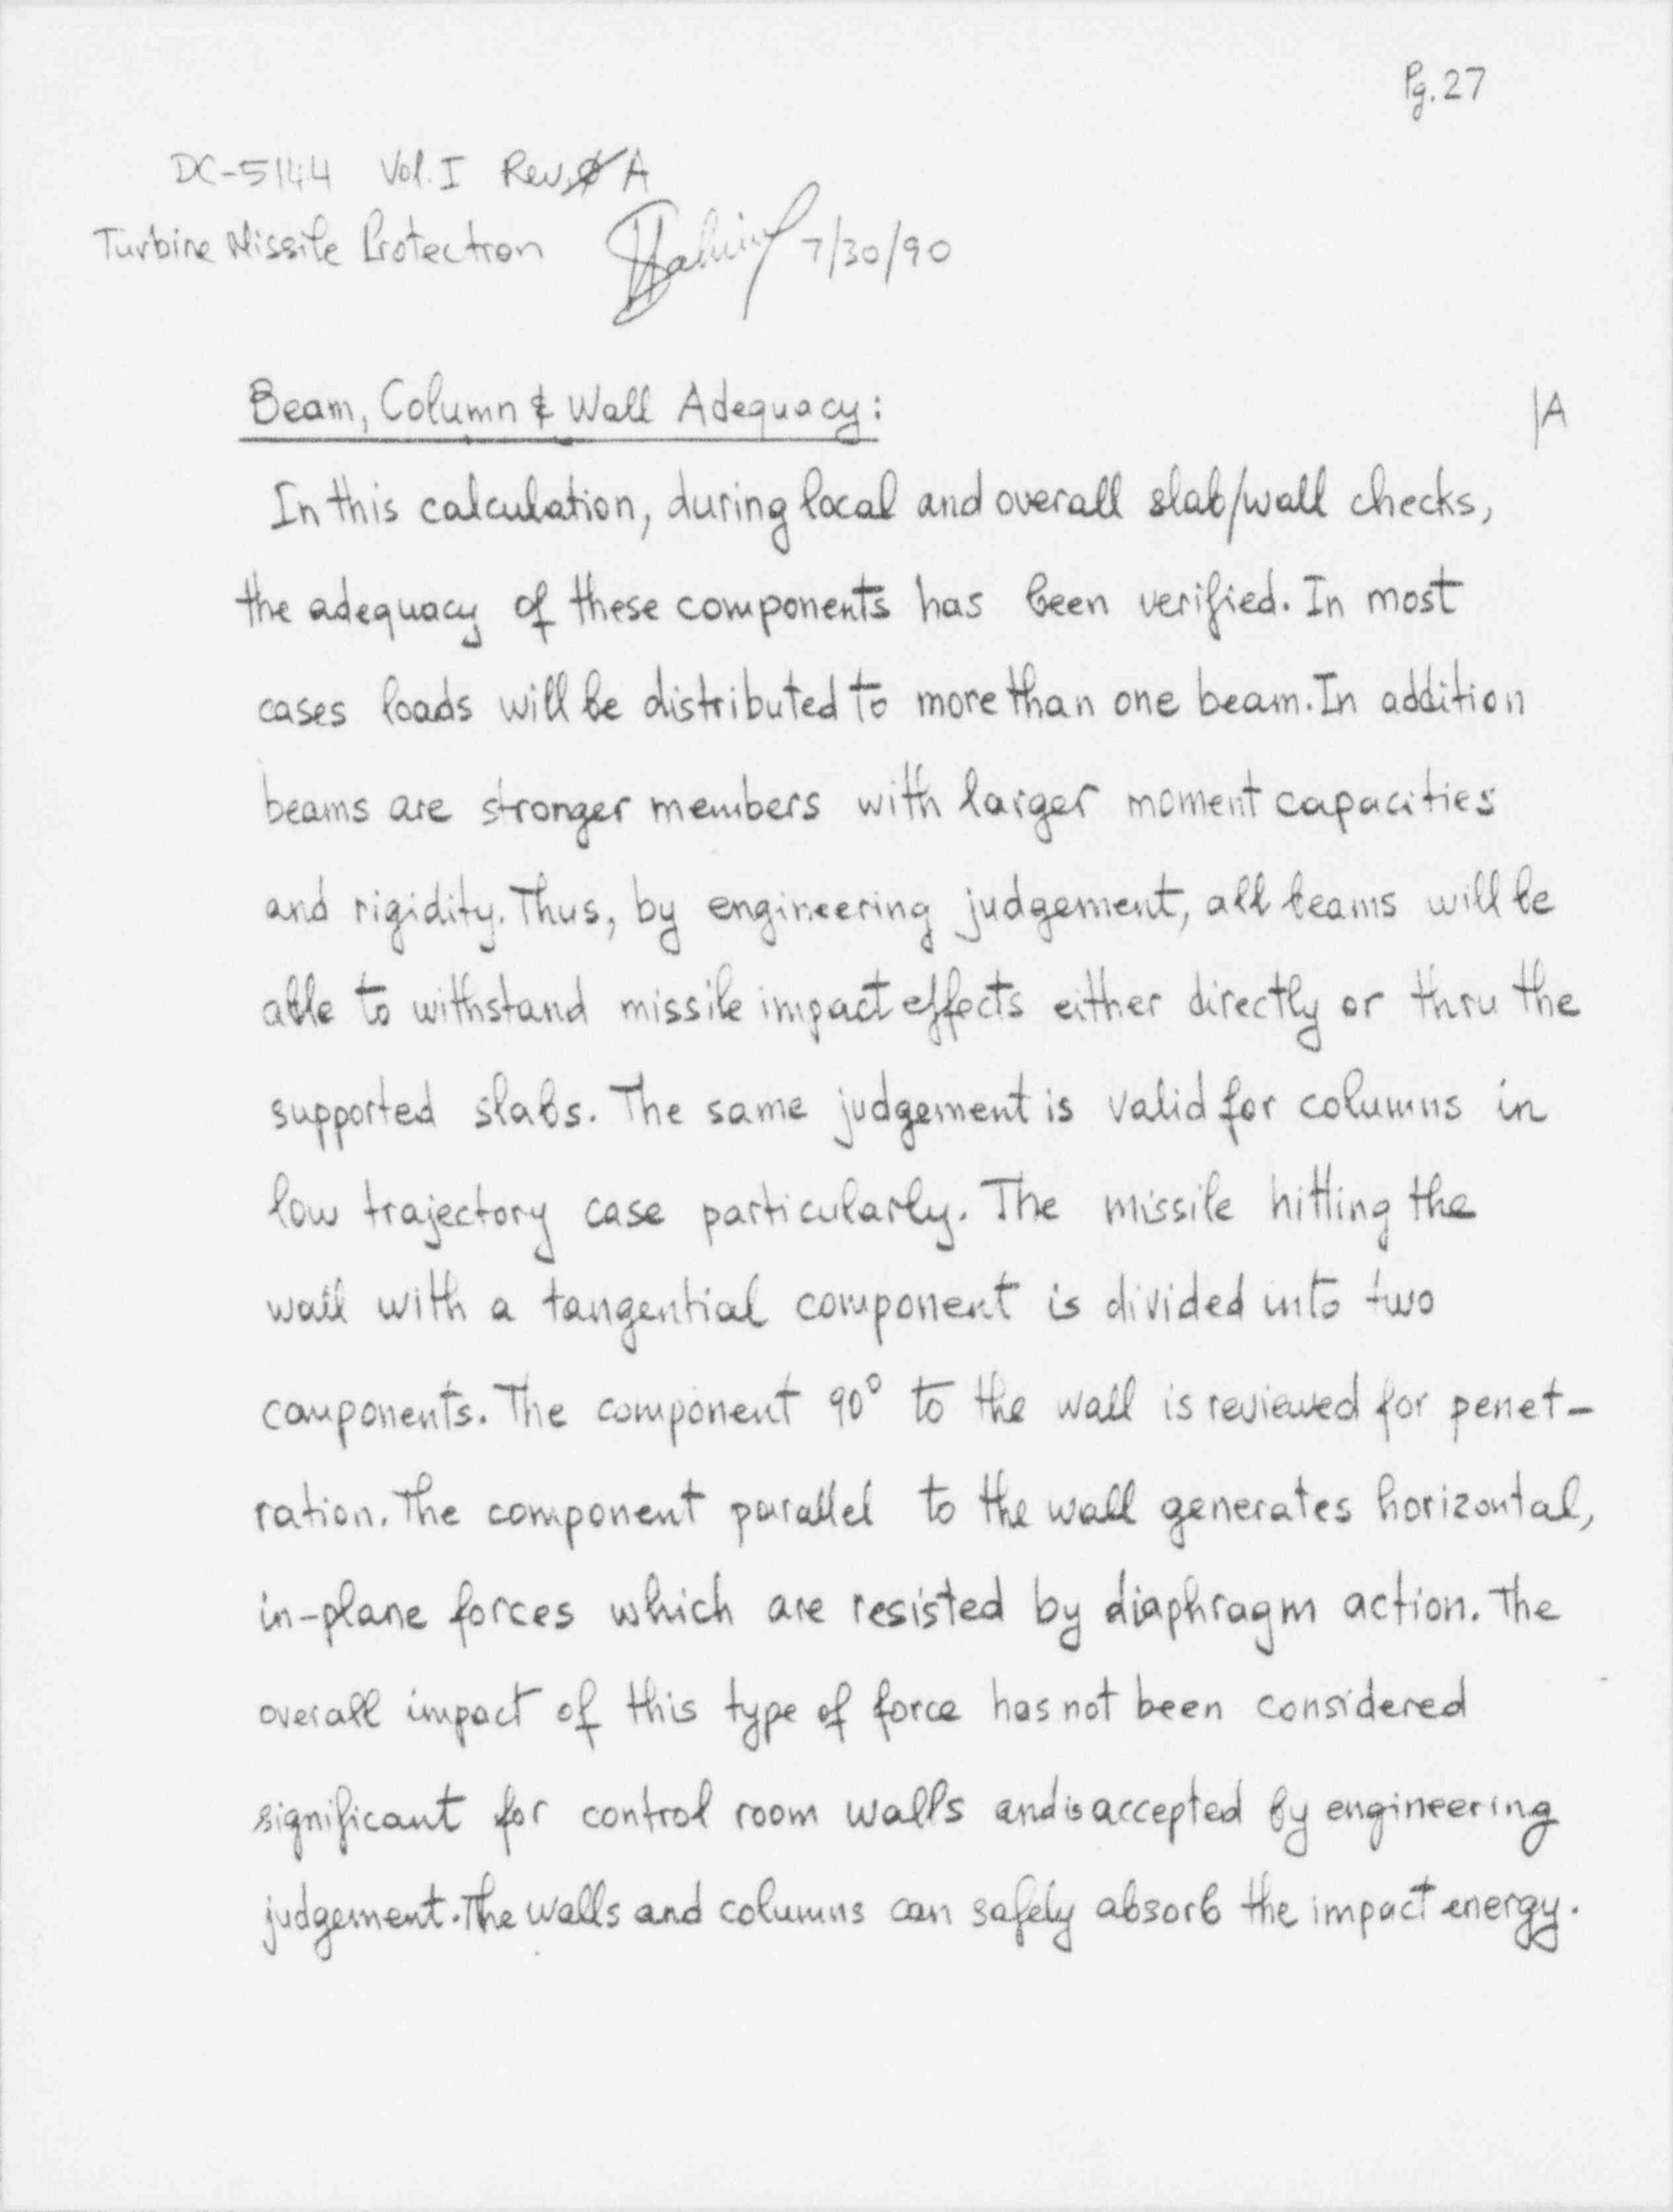 Pg. 27
DC-5144 Vol. I Rev. A
Turbine Missile Protection 7/30/90
Beam, Column & Wall Adequacy:
|A
In this calculation, during local and overall slab/wall checks,
the adequacy of these components has been verified. In most
cases loads will be distributed to more than one beam. In addition
beams are stronger members with larger moment capacities
and rigidity. Thus, by engineering judgement, all beams will be
able to withstand missile impact effects either directly or thru the
supported slabs. The same judgement is valid for columns in
low trajectory case particularly. The missile hitting the
wall with a tangential component is divided into two
components. The component 90° to the wall is reviewed for penet-
ration. The component parallel to the wall generates horizontal,
in-plane forces which are resisted by diaphragm action. The
overall impact of this type of force has not been considered
significant for control room walls and is accepted by engineering
judgement. The walls and columns can safely absorb the impact energy.